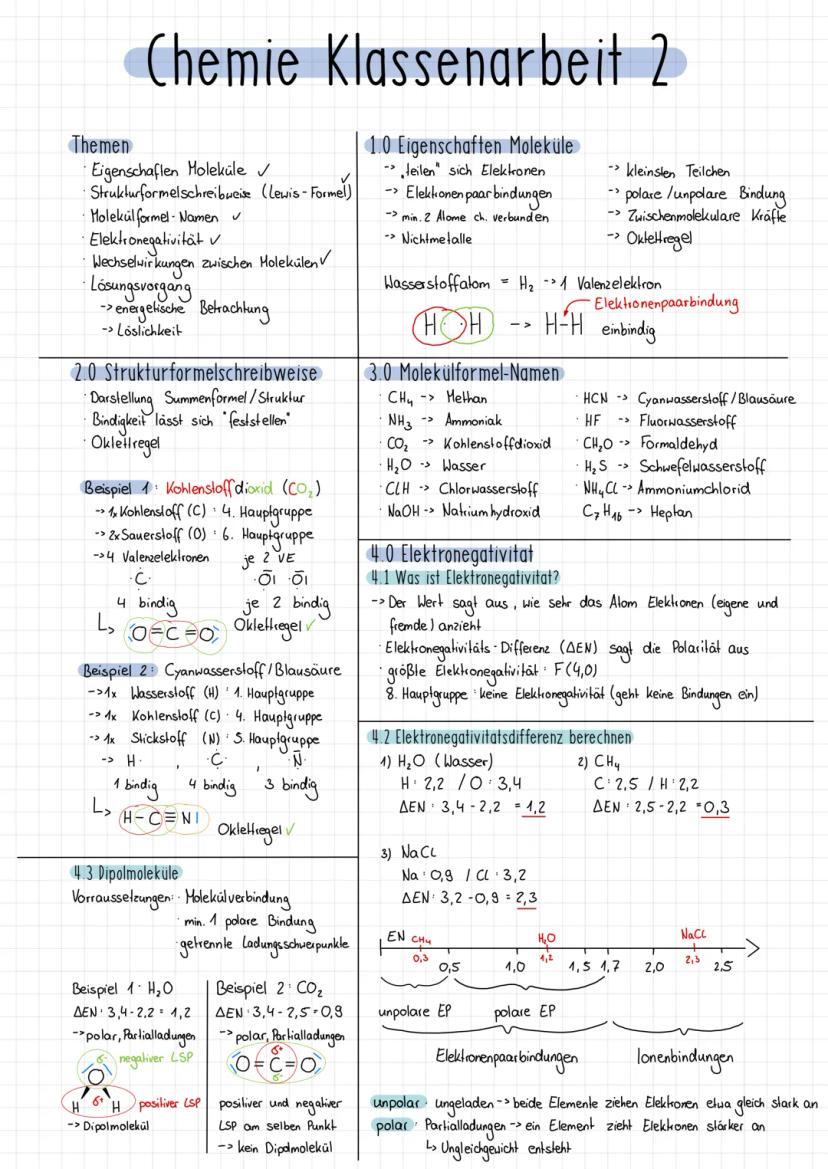 Chemie Klassenarbeit 2
Themen
· Eigenschaften Moleküle ✓
· Strukturformelschreibweise (Lewis-Formel) ✓
· Molekülformel-Namen ✓
· Elektronegativität ✓
· Wechselwirkungen zwischen Molekülen ✓
· Lösungsvorgang
-> energetische Betrachtung
-> Löslichkeit
1.0 Eigenschaften Moleküle
-> „teilen" sich Elektronen
-> Elektronenpaarbindungen
-> min. 2 Atome ch. verbunden
-> Nichtmetalle
-> kleinsten Teilchen
-> polare/unpolare Bindung
-> Zwischenmolekulare Kräfte
-> Oktettregel
Wasserstoffatom = H₂ -> 1 Valenzelektron
Elektronenpaarbindung
H · · H -> H-H einbindig
2.0 Strukturformelschreibweise
· Darstellung Summenformel/Struktur
· Bindigkeit lässt sich "feststellen"
· Oktettregel
Beispiel 1: Kohlenstoffdioxid (CO₂)
-> 1x Kohlenstoff (C) : 4. Hauptgruppe
-> 2x Sauerstoff (O) : 6. Hauptgruppe
-> 4 Valenzelektronen je 2 VE
·Ċ· ·Ō| ·Ō|
4 bindig je 2 bindig
↳ O=C=O Oktettregel ✓
Beispiel 2: Cyanwasserstoff/Blausäure
-> 1x Wasserstoff (H) : 1. Hauptgruppe
-> 1x Kohlenstoff (C) : 4. Hauptgruppe
-> 1x Stickstoff (N) : 5. Hauptgruppe
-> H· , ·Ċ· , ·N̄·
1 bindig 4 bindig 3 bindig
↳ H-C≡N| Oktettregel ✓
3.0 Molekülformel-Namen
· CH₄ -> Methan
· NH₃ -> Ammoniak
· CO₂ -> Kohlenstoffdioxid
· H₂O -> Wasser
· ClH -> Chlorwasserstoff
· NaOH -> Natriumhydroxid
· HCN -> Cyanwasserstoff/Blausäure
· HF -> Fluorwasserstoff
· CH₂O -> Formaldehyd
· H₂S -> Schwefelwasserstoff
· NH₄Cl -> Ammoniumchlorid
· C₇H₁₆ -> Heptan
4.0 Elektronegativität
4.1 Was ist Elektronegativität?
-> Der Wert sagt aus, wie sehr das Atom Elektronen (eigene und
fremde) anzieht
· Elektronegativitäts-Differenz (ΔEN) sagt die Polarität aus
· größte Elektronegativität : F (4,0)
8. Hauptgruppe : keine Elektronegativität (geht keine Bindungen ein)
4.2 Elektronegativitätsdifferenz berechnen
1) H₂O (Wasser)
H : 2,2 / O : 3,4
ΔEN : 3,4 - 2,2 = 1,2
2) CH₄
C : 2,5 / H : 2,2
ΔEN : 2,5 - 2,2 = 0,3
3) NaCl
Na : 0,9 / Cl : 3,2
ΔEN : 3,2 - 0,9 = 2,3
EN CH₄ H₂O NaCl
0,3 0,5 1,0 1,2 1,5 1,7 2,0 2,3 2.5
unpolare EP polare EP
Elektronenpaarbindungen Ionenbindungen
unpolar : ungeladen -> beide Elemente ziehen Elektronen etwa gleich stark an
polar : Partialladungen -> ein Element zieht Elektronen stärker an
↳ Ungleichgewicht entsteht
4.3 Dipolmoleküle
Vorraussetzungen: · Molekülverbindung
· min. 1 polare Bindung
· getrennte Ladungsschwerpunkte
Beispiel 1 : H₂O
ΔEN : 3,4 - 2,2 = 1,2
-> polar, Partialladungen
δ- negativer LSP
O
H δ+ H positiver LSP
-> Dipolmolekül
Beispiel 2 : CO₂
ΔEN : 3,4 - 2,5 = 0,9
-> polar, Partialladungen
δ+
O=C=O
δ-
positiver und negativer
LSP am selben Punkt
-> kein Dipolmolekül